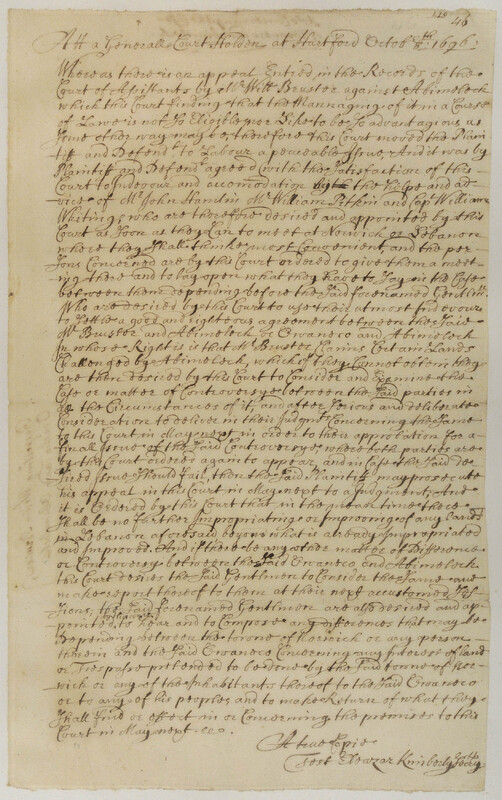 46
Att a Generall Court Holden at Hartford Octobr 8th: 1696:
Whereas there is an appeal Entred in the Records of the
Court of Assistants by Mr Willm Bruster against Abimeleck
which this Court finding that the Mannaging of it in a Course
of Lawe is not so Eligeble nor Like to be so advantagious as
some other way may be, therefore this Court moved the Plain
tiff and Defendt to Labour a peaceable Issue, And it was by
Plaintiff and Defendt agreed with the satisfaction of this
Court to Indevour and accomodation by the helpe and ad
vice of Mr John Hamlin Mr William Pitkin and Capt William
Whiting, who are therefore desired and appointed by this
Court as soon as they Can to meet at Norwich or Lebanon
where they shall thinke most Convenient, and the per
sons Concerned are by this Court ordered to give them a meet
ing there and to lay open what they have to say in the Case
between them depending before the said forenamed Gentlmn
Who are desired by this Court to use their utmost Indevour
to settle a good and righteous agreement between the said
Mr Bruster and Abimeleck & Owaneco and Abimeleck
in whose Right it is that Mr Bruster Claims Certain Lands
Challenged by Abimeleck, which if they Cannot obtein they
are then desired by this Court to Consider and Examine the
Case or matter of Controversy between the said parties in
all the Circumstances of it, and after serious and deliberate
Consideration to deliver in their Judgmt Concerning the same
to this Court in May next in order to their approbation for a
finall Issue of the said Controversy, where both parties are
by this Court ordered againe to appear, and in Case the said de
sired Issue should fail, then the said Plaintiff may prosecute
his appeal in this Court in May next to a Judgment; And
it is Ordered by this Court that in the mean time there
shall be no further Impropriating or Improving of any lands
in Lebanon aforesaid beyond what is already Impropriated
and improved. And if there be any other matter of Difference
or Controversy between the said Owaneco and Abimeleck
this Court desires the said Gentlmen to Consider the same and
make report thereof to them at their next accustomed Ses
sions; the said forenamed Gentlmen are also desired and ap
pointed to hear and to Compose any differences that may be
Depending between the towne of Norwich or any person
therein and the said Owaneco Concerning any Interest of land
or Trespass pretended to be done by the said towne of Nor
wich or any of the Inhabitants thereof to the said Owaneco
or to any of his people, and to make Return of what they
shall find or effect in or Concerning the premises to this
Court in May next &c.
A true Copie
Test Eleazar Kimberly Secry